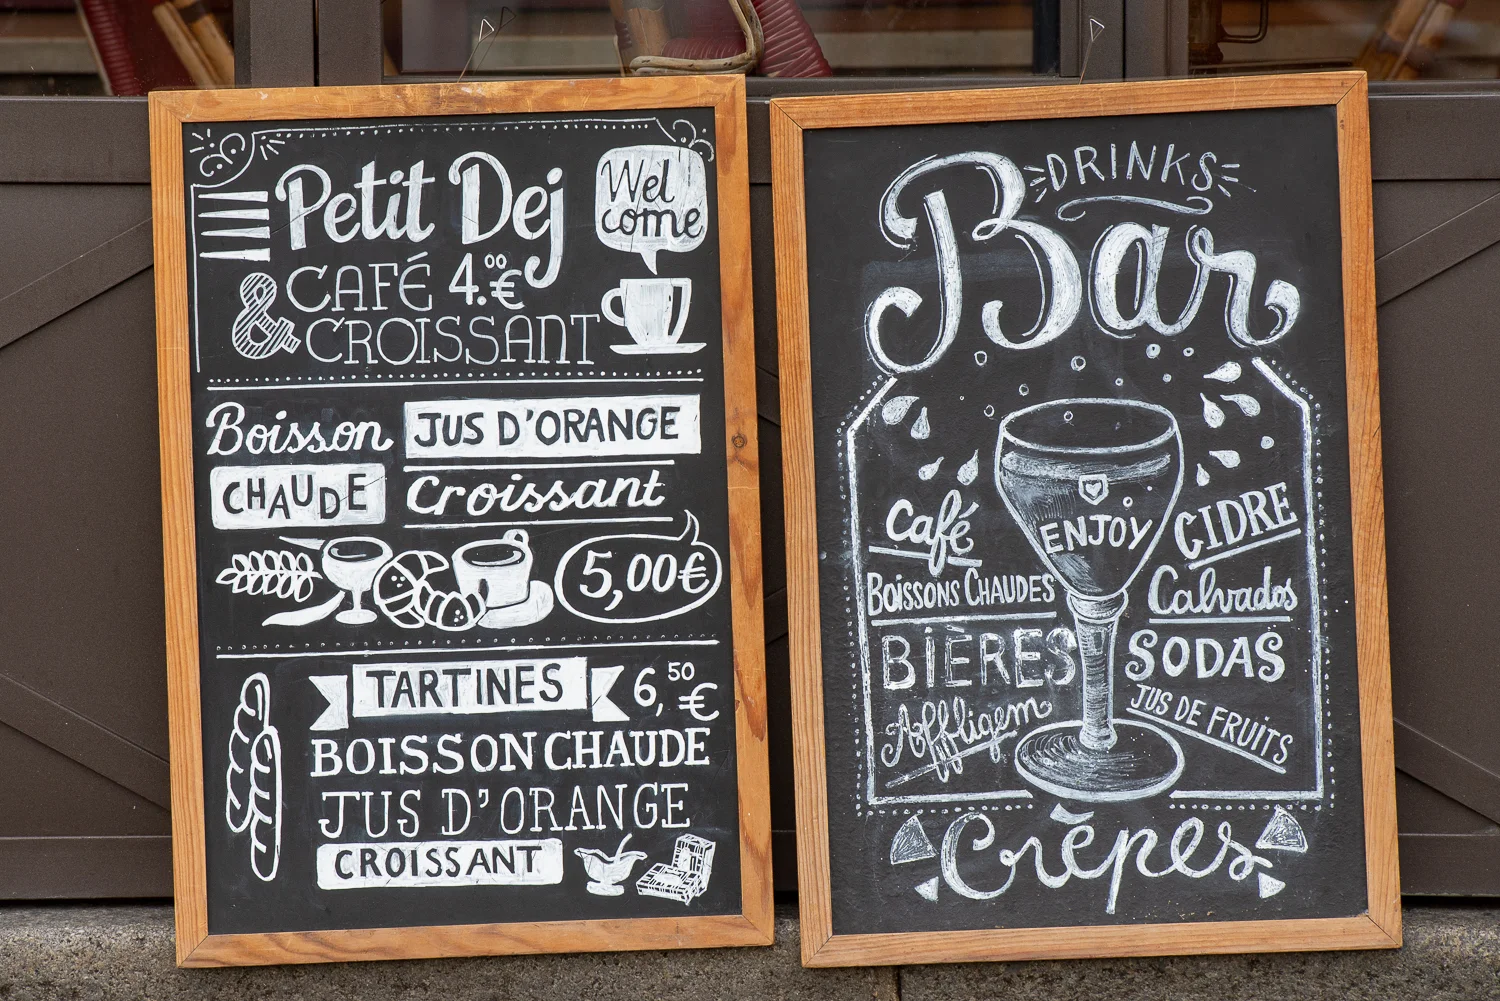 Petit Dej
Wel
come
& CAFÉ 4.00€
CROISSANT
Boisson
CHAUDE
JUS D'ORANGE
Croissant
5,00€
TARTINES 6,50€
BOISSON CHAUDE
JUS D'ORANGE
CROISSANT
DRINKS
Bar
Café
BOISSONS CHAUDES
BIÈRES
Affligem
ENJOY
CIDRE
Calvados
SODAS
JUS DE FRUITS
Crèpes